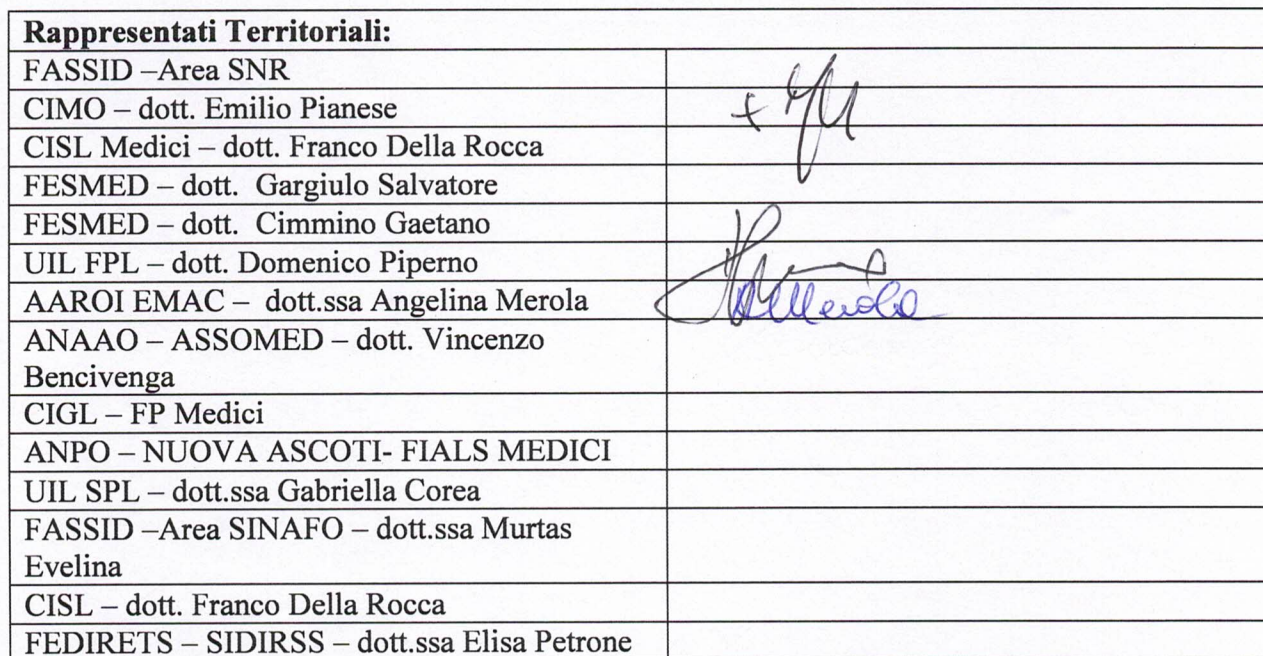 Rappresentati Territoriali:
FASSID –Area SNR
CIMO – dott. Emilio Pianese
CISL Medici – dott. Franco Della Rocca
FESMED – dott. Gargiulo Salvatore
FESMED – dott. Cimmino Gaetano
UIL FPL – dott. Domenico Piperno
AAROI EMAC – dott.ssa Angelina Merola
ANAAO – ASSOMED – dott. Vincenzo
Bencivenga
CIGL – FP Medici
ANPO – NUOVA ASCOTI- FIALS MEDICI
UIL SPL – dott.ssa Gabriella Corea
FASSID –Area SINAFO – dott.ssa Murtas
Evelina
CISL – dott. Franco Della Rocca
FEDIRETS – SIDIRSS – dott.ssa Elisa Petrone